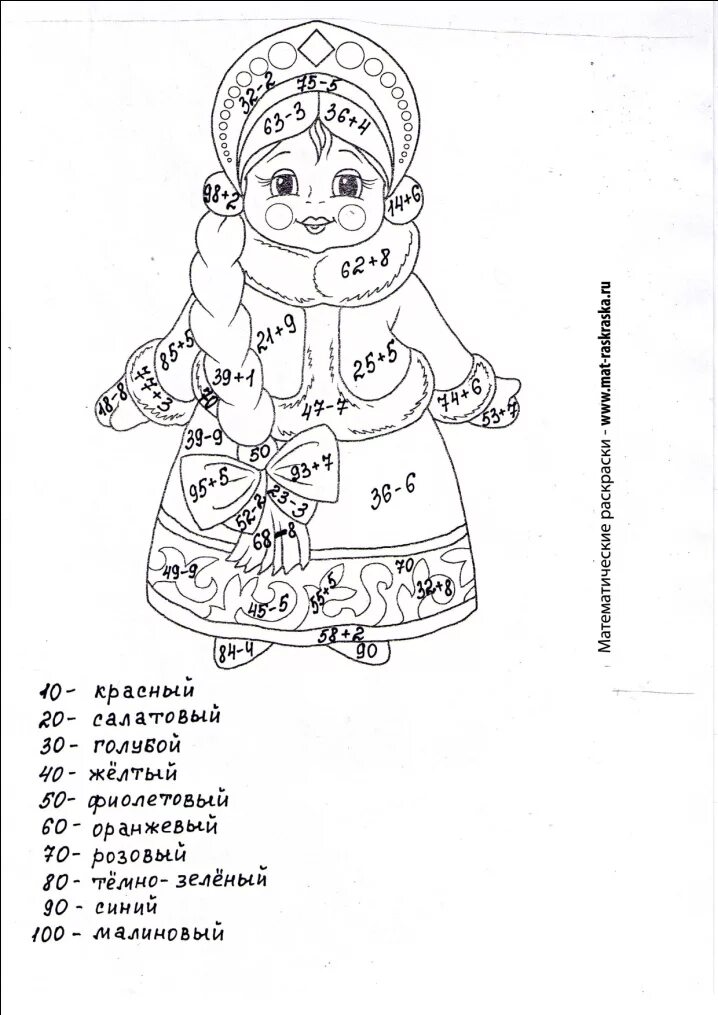 75-5
32-2
63-3
36+4
98+2
14+6
62+8
21+9
85+5
25+5
39+1
77+3
74+6
18-8
70
47-7
53+7
39-9
50
95+5
93+7
36-6
52-2
23-3
68-8
49-9
70
45-5
55+5
32+8
58+2
84-4
90
Математические раскраски - www.mat-raskraska.ru
10 - красный
20 - салатовый
30 - голубой
40 - жёлтый
50 - фиолетовый
60 - оранжевый
70 - розовый
80 - тёмно-зелёный
90 - синий
100 - малиновый